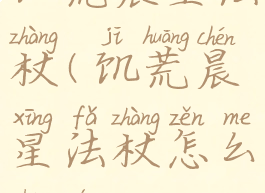 zhàng jī huāng chén
杖(饥荒晨
xīng fǎ zhàng zěn me
星法杖怎么